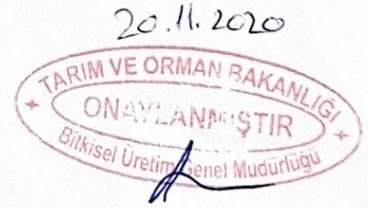 20.11.2020
TARIM VE ORMAN BAKANLIĞI
ONAYLANMIŞTIR
Bitkisel Üretim Genel Müdürlüğü